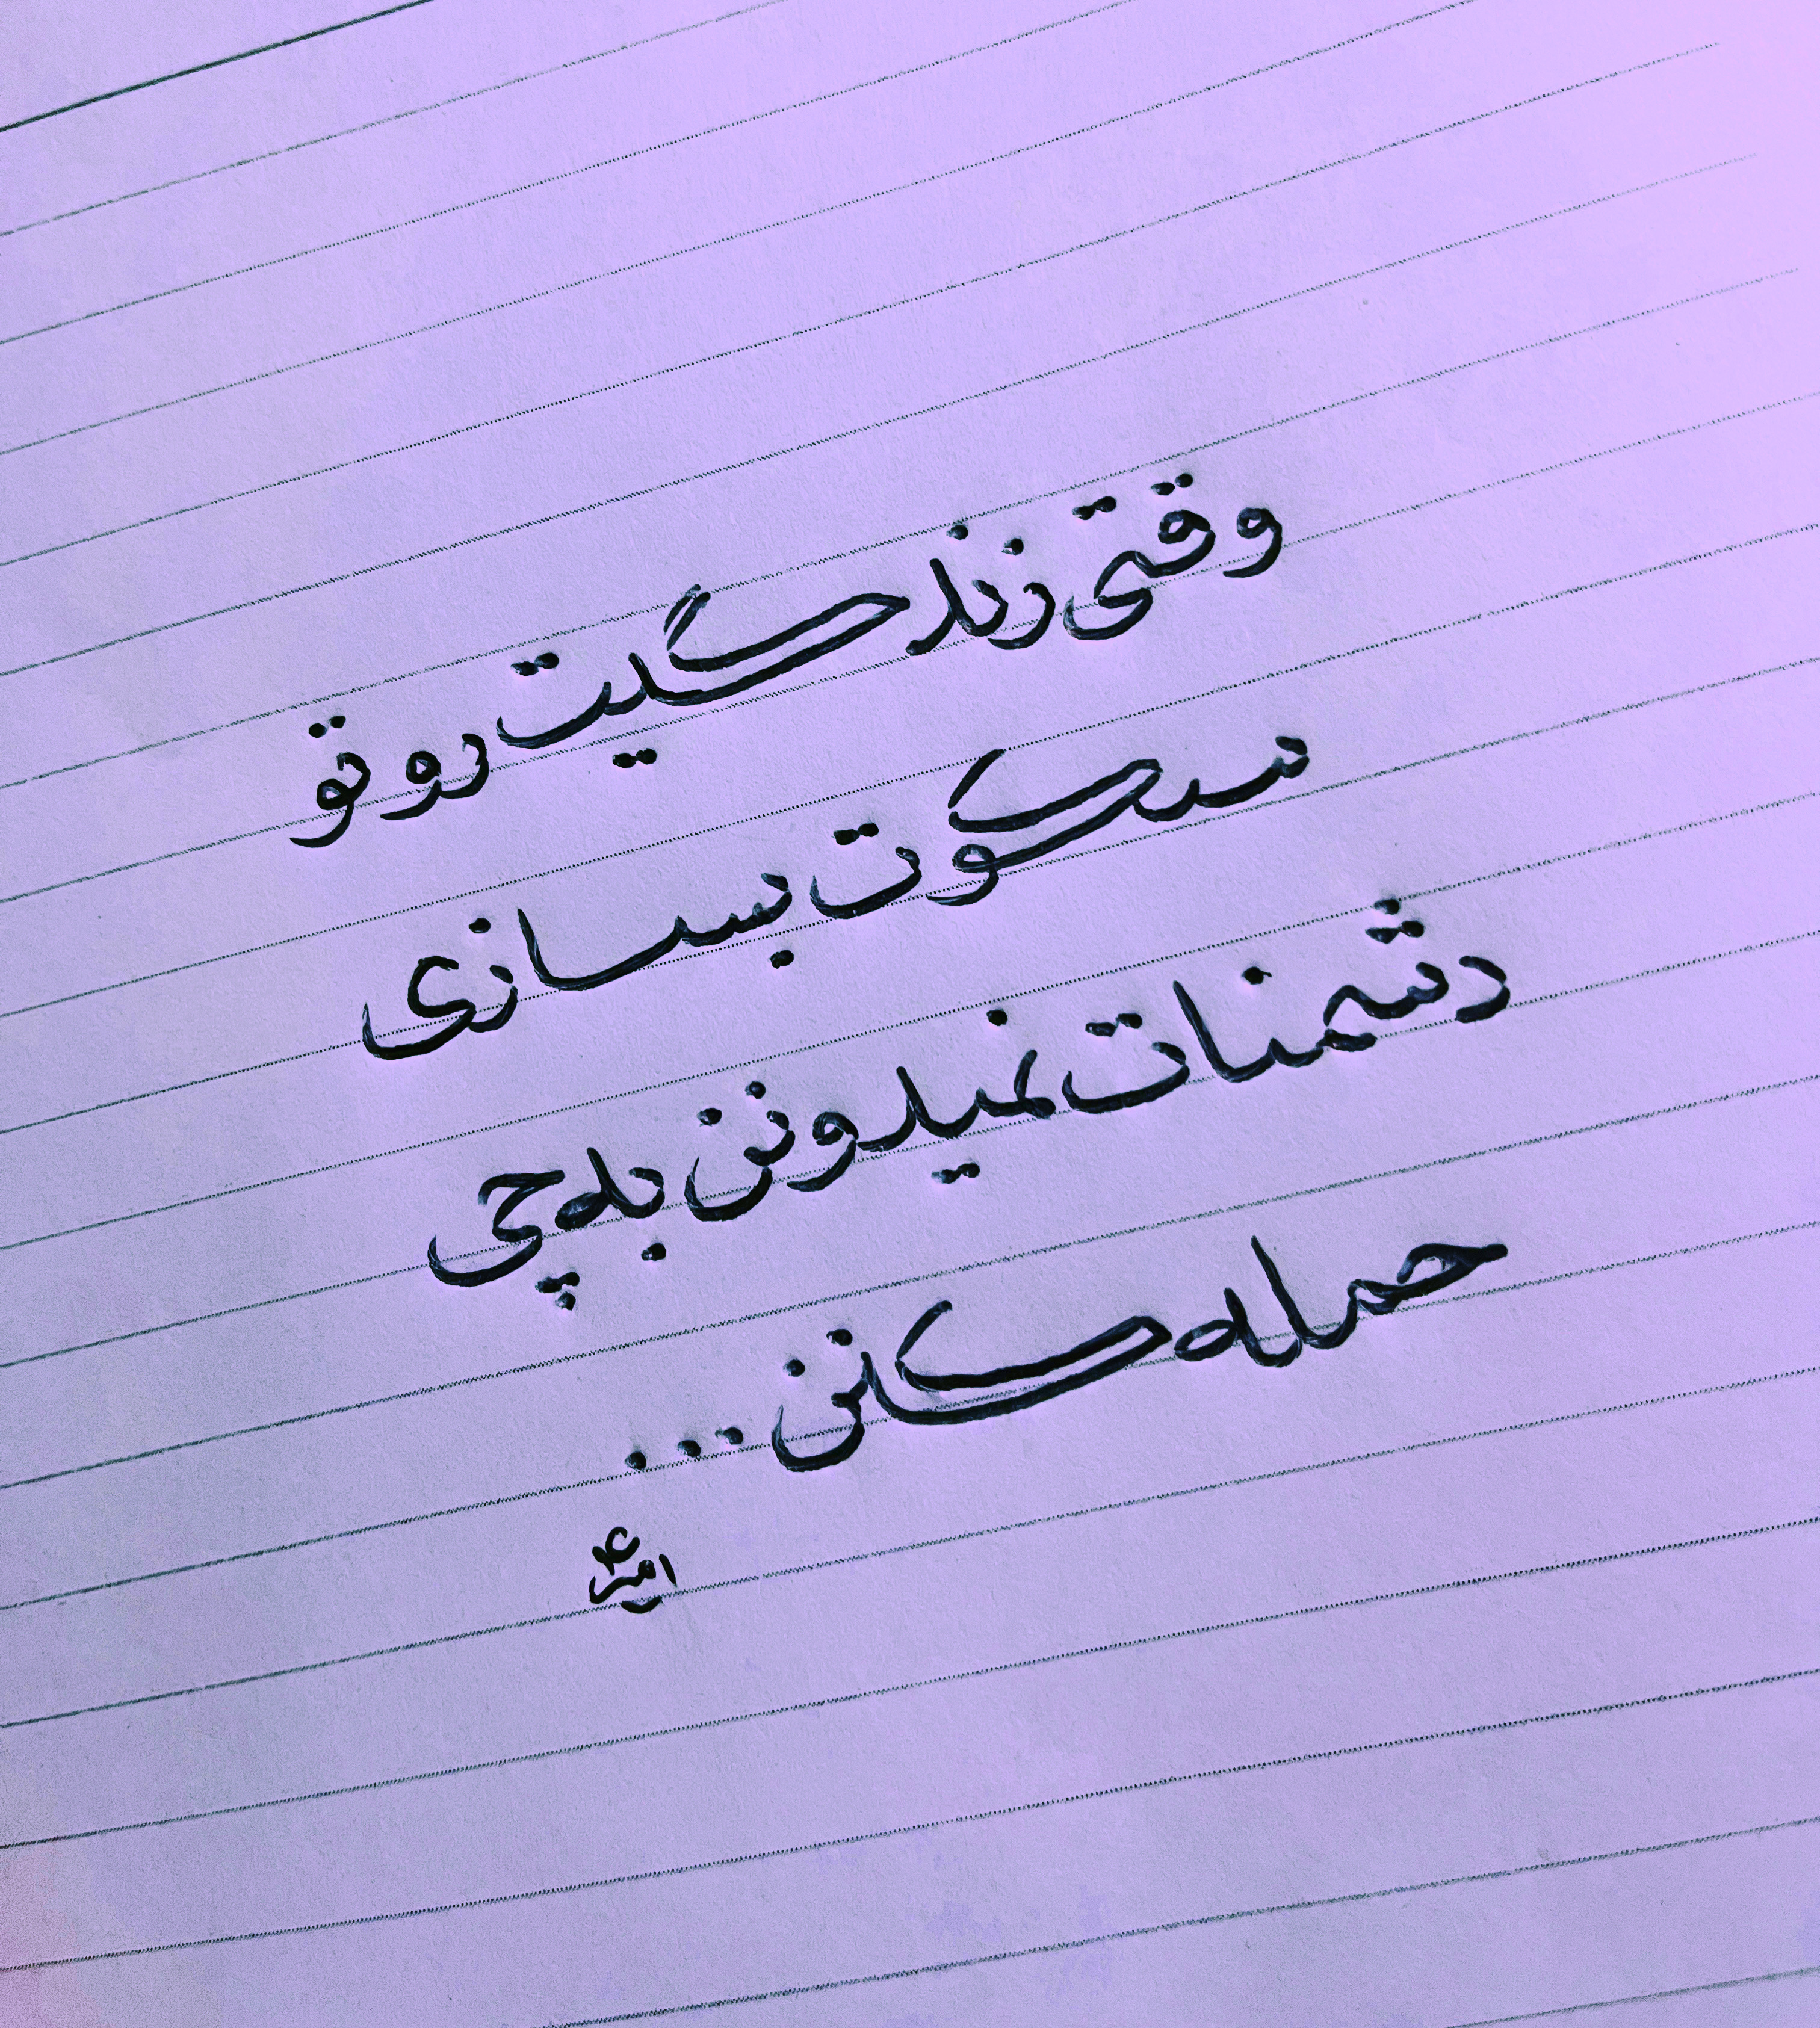 وقتی زندگیت رو تو
سکوت بسازی
دشمنات نمیدونن به چی
حمله کنن ...